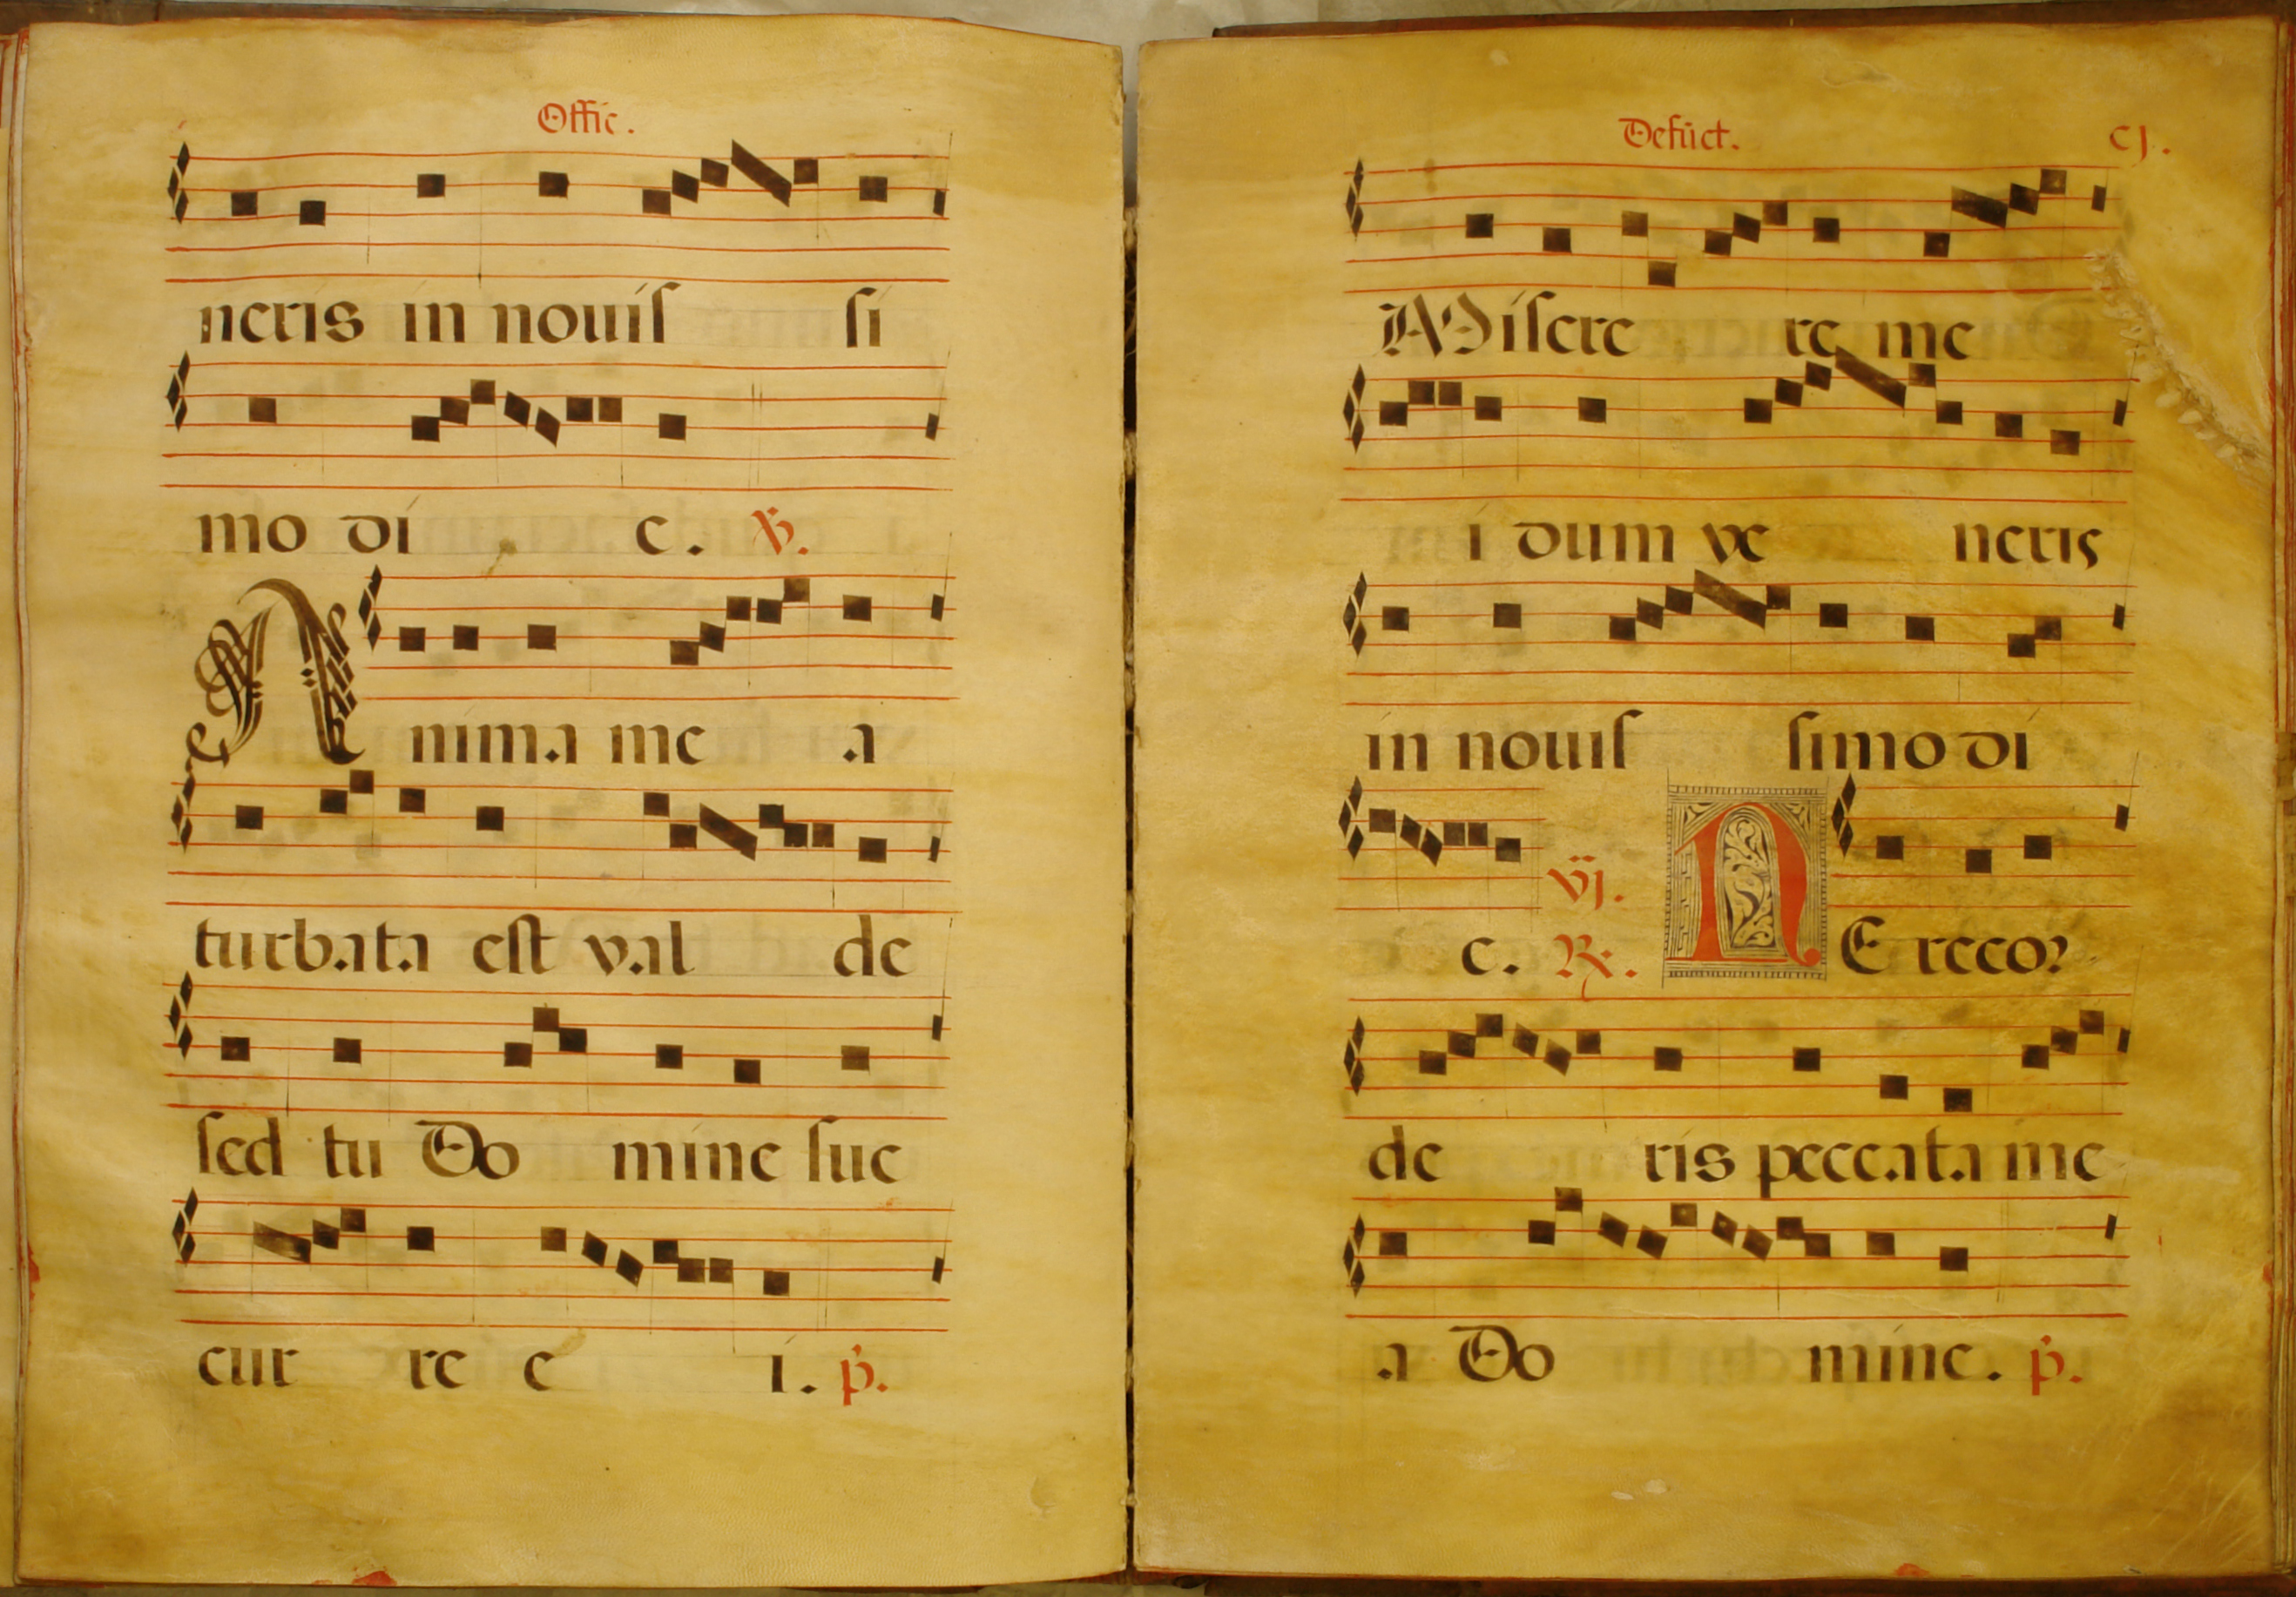 Offic.
neris in nouiſ ſi
mo di e. ℣.
Anima me a
turbata eſt val de
ſed tu Do mine ſuc
cur re e i. p̄.
Defūct. cj.
Miſere re me
i dum ve neris
in nouiſ ſimo di
e. vj. ℟. NE recor
de ris peccata me
a Do mine. p̄.